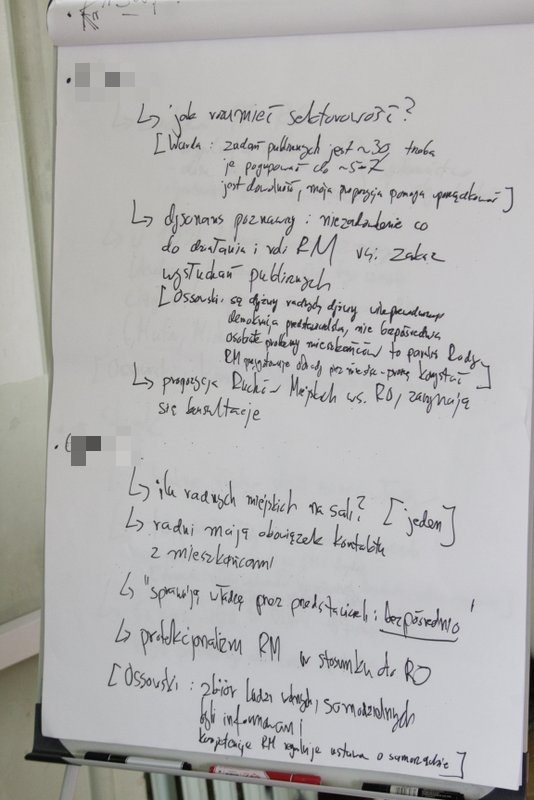 ↳ jak rozumieć sektorowość?
[Warda: zadań publicznych jest ~30, trzeba
je pogrupować do ~5-7
jest dowolność, moja propozycja pomaga uporządkować]
↳ dysonans poznawczy: niezadowolenie co
do działania i roli RM vs. zakaz
wysłuchań publicznych
[Ossowski: są dyżury radnych, dyżury
demokracja przedstawicielska, nie bezpośrednia
osobiste problemy mieszkańców to Rady
RM przygotowuje obrady - proszę korzystać]
↳ propozycja Ruchów Miejskich ws. RO, zaczynają
się konsultacje
↳ ilu radnych miejskich na sali? [jeden]
↳ radni mają obowiązek kontaktu
z mieszkańcami
↳ "sprawują władzę przez przedstawicieli i bezpośrednio"
↳ protekcjonalizm RM w stosunku do RO
[Ossowski: zbiór ludzi wolnych, samodzielnych
byli informowani
kompetencje RM reguluje ustawa o samorządzie]